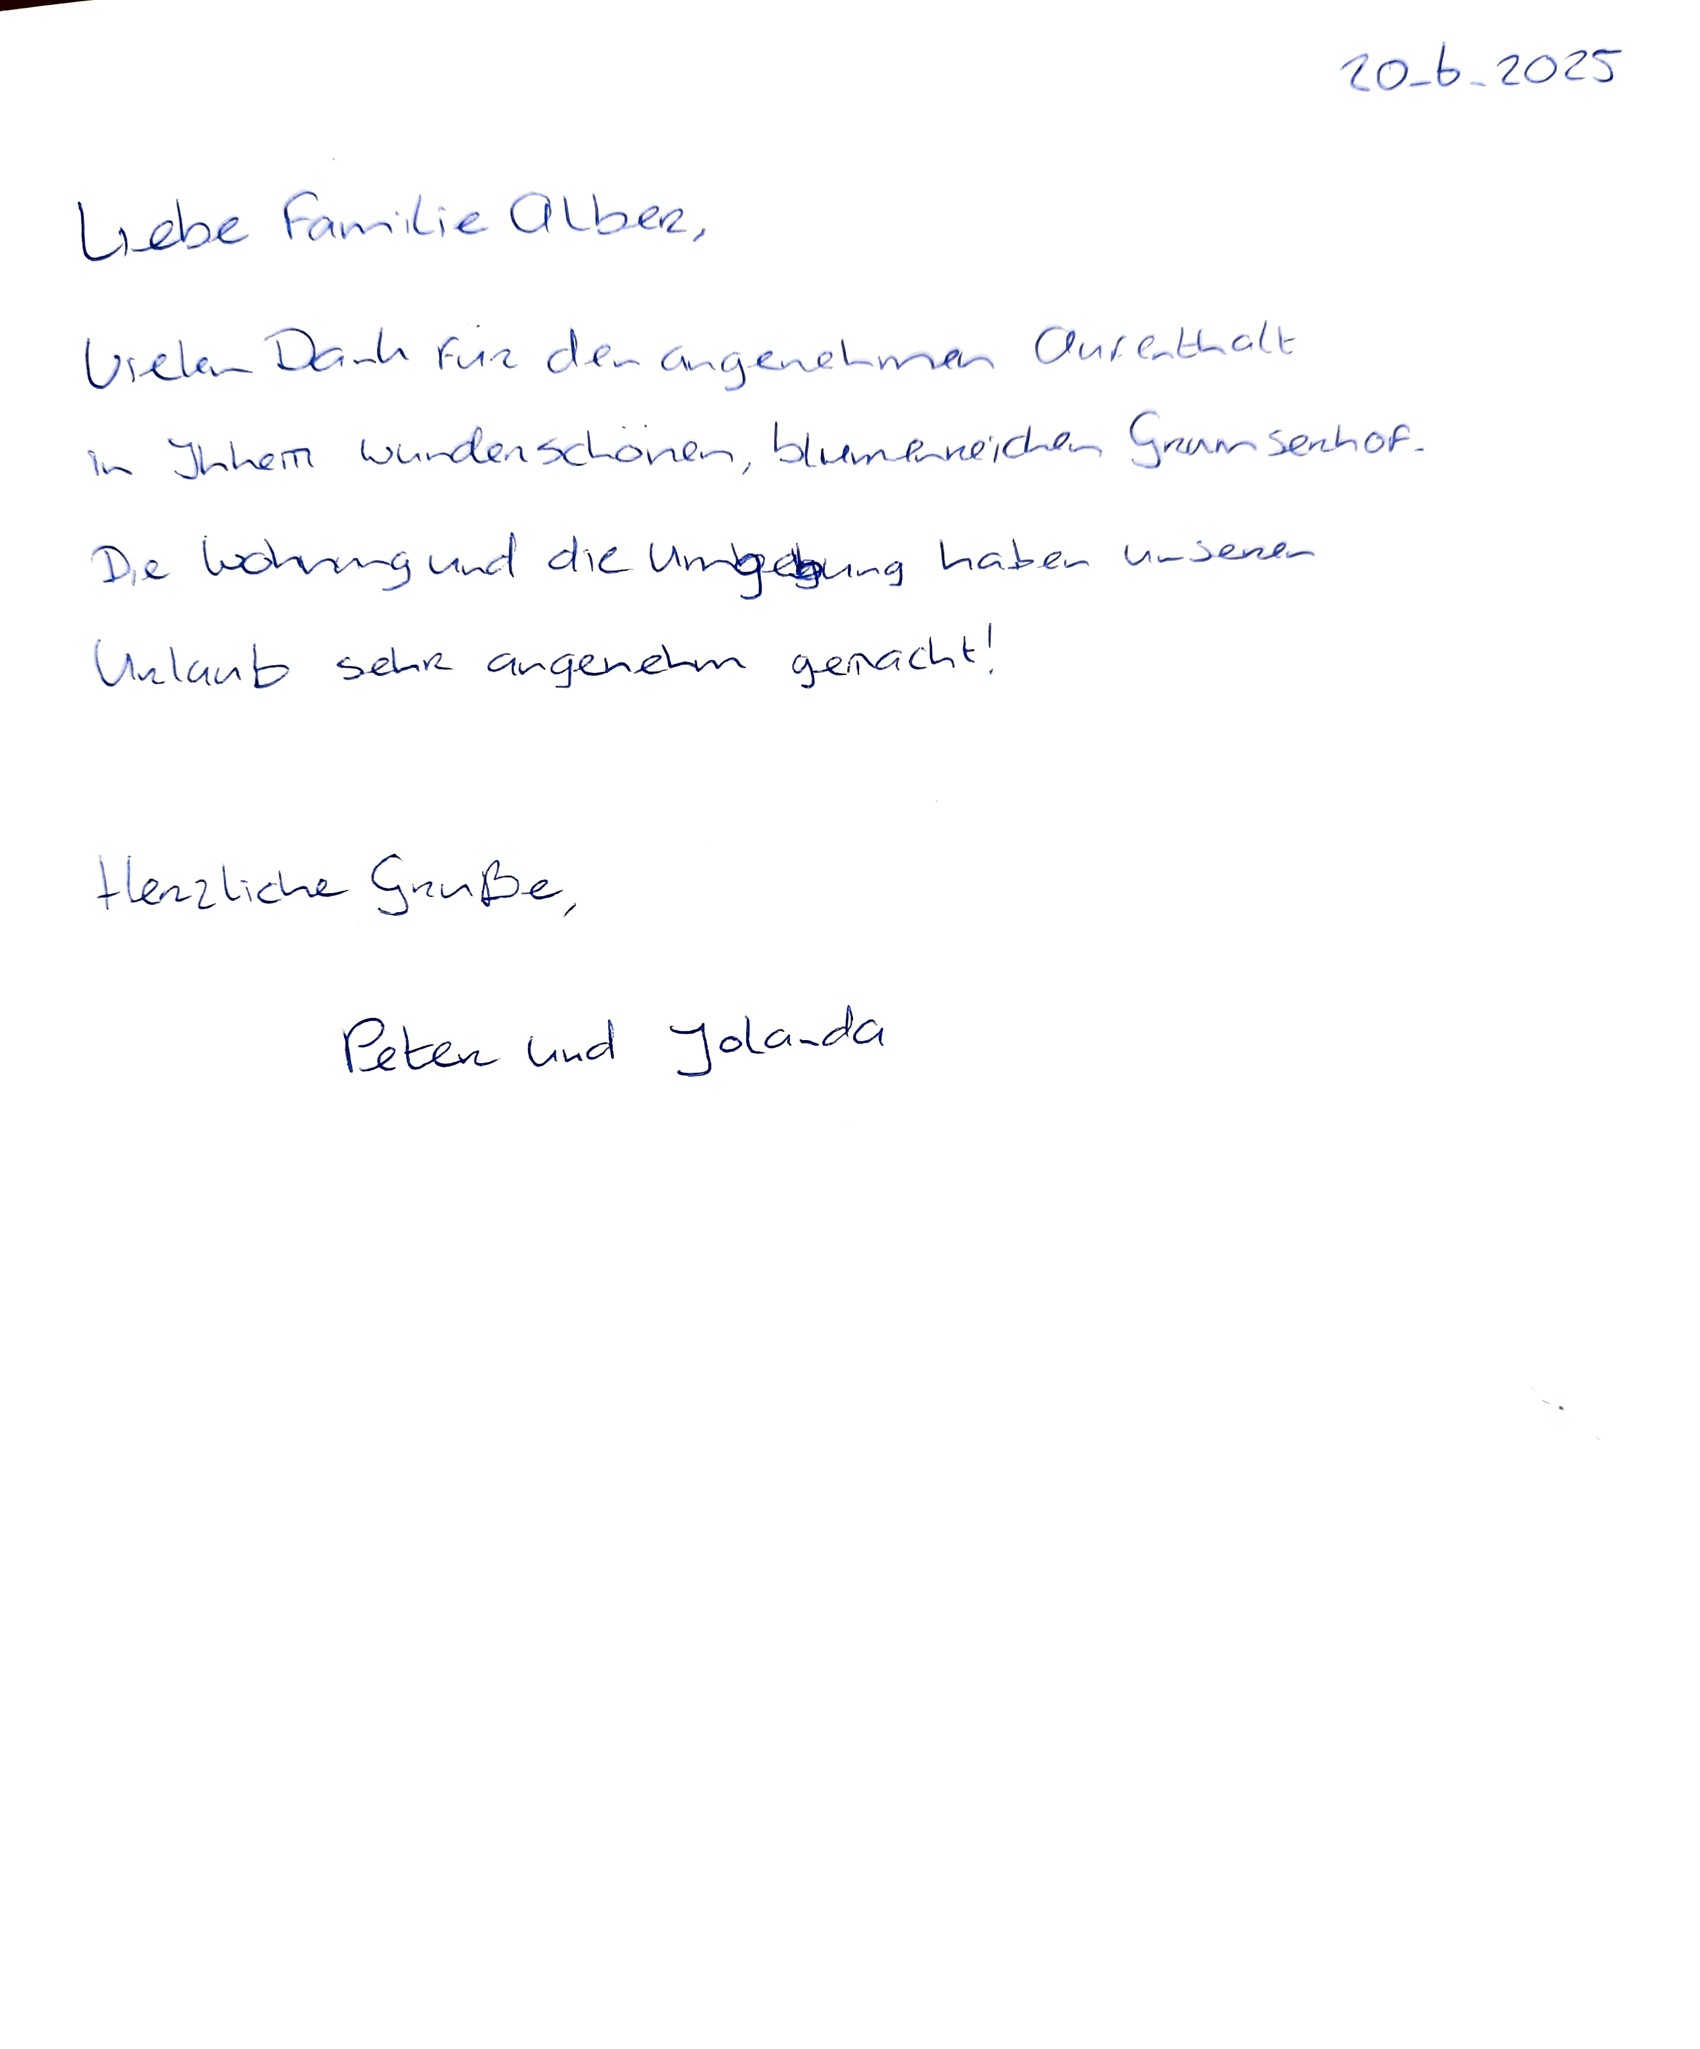 20-6-2025
Liebe Familie Alber,
Vielen Dank für den angenehmen Aufenthalt
in Ihrem wunderschönen, blumenreichen Gramsenhof.
Die Wohnung und die Umgebung haben unseren
Urlaub sehr angenehm gemacht!
Herzliche Gruße,
Peter und Jolanda